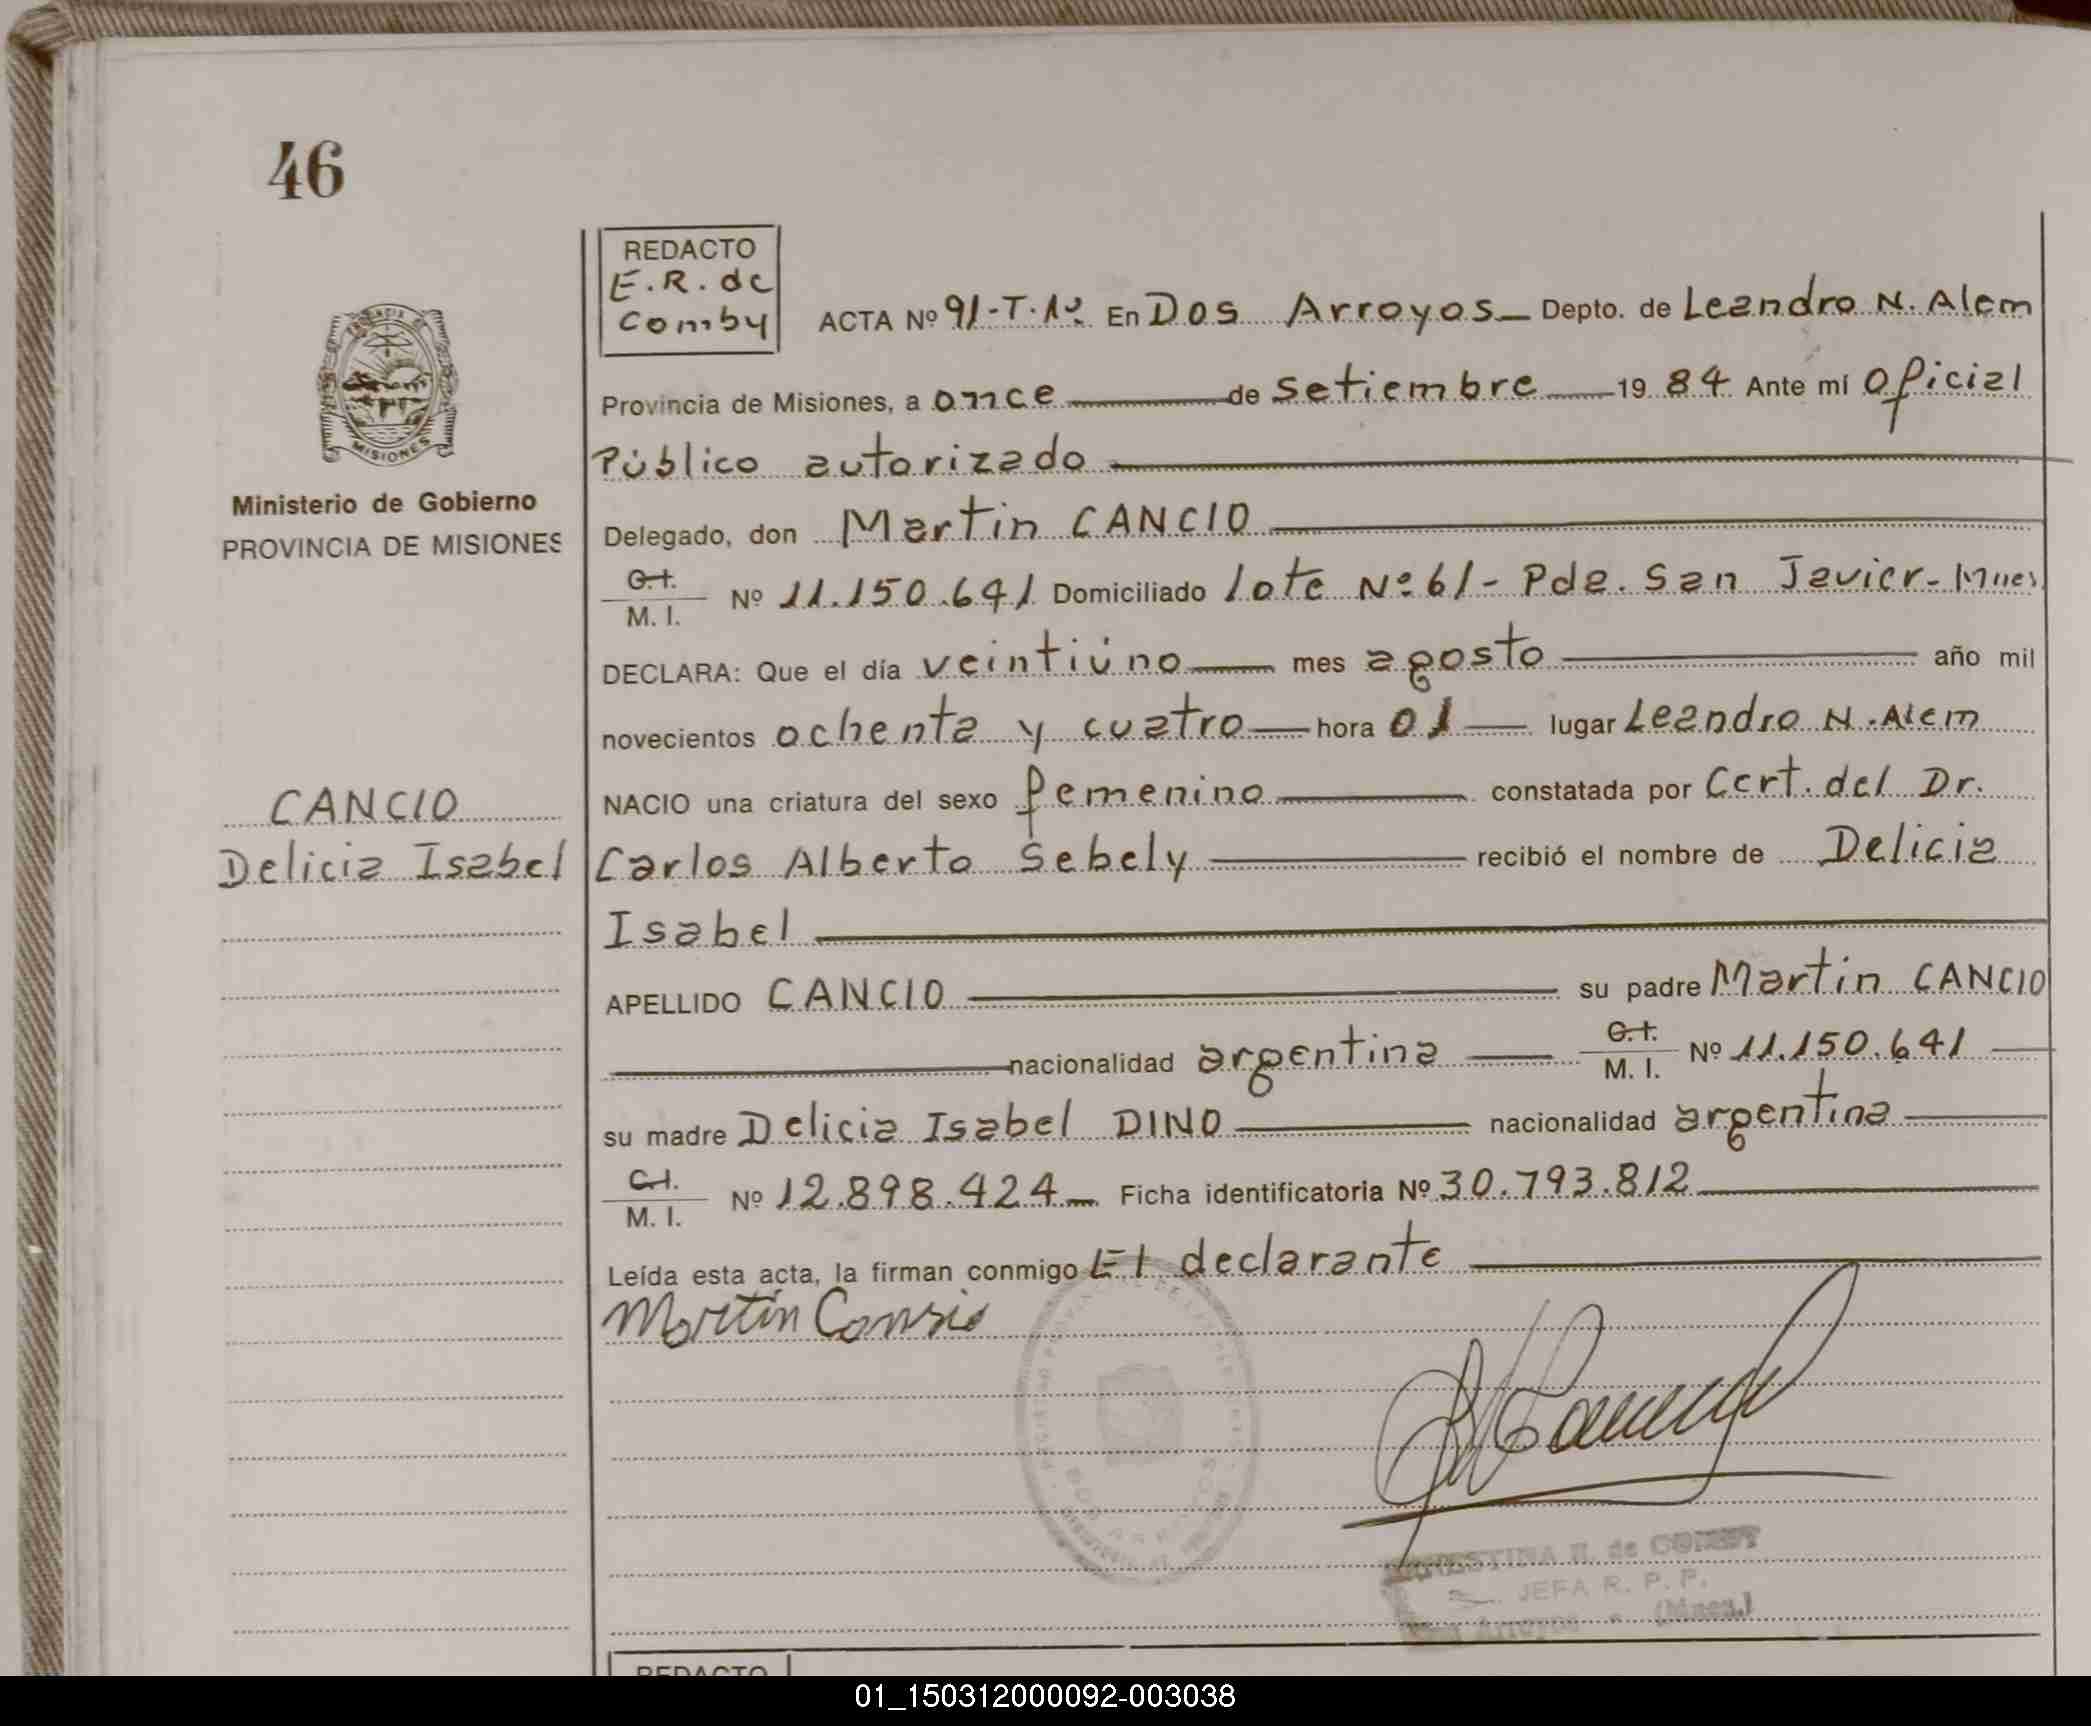 46
REDACTO
E.R. de
Comby
ACTA Nº 91-T.1º. En Dos Arroyos Depto. de Leandro N. Alem
Provincia de Misiones, a once de setiembre 19 84 Ante mí Oficial
Público autorizado
Delegado, don Martin CANCIO
C.I.
M. I. Nº 11.150.641 Domiciliado lote Nº 61 - Pda. San Javier - Mnes.
DECLARA: Que el día veintiúno mes agosto año mil
novecientos ochenta y cuatro hora 01 lugar Leandro N. Alem
NACIO una criatura del sexo femenino constatada por Cert. del Dr.
Carlos Alberto Sebely recibió el nombre de Delicia
Isabel
APELLIDO CANCIO su padre Martin CANCIO
nacionalidad argentina C.I.
M. I. Nº 11.150.641
su madre Delicia Isabel DINO nacionalidad argentina
C.I.
M. I. Nº 12.898.424 Ficha identificatoria Nº 30.793.812
Leída esta acta, la firman conmigo El declarante
Martín
MISIONES
Ministerio de Gobierno
PROVINCIA DE MISIONES
CANCIO
Delicia Isabel
DOS ARROYOS
de COMBY
JEFA R. P. P.
Arroyos - (Mnes.)
REDACTO
01_150312000092-003038